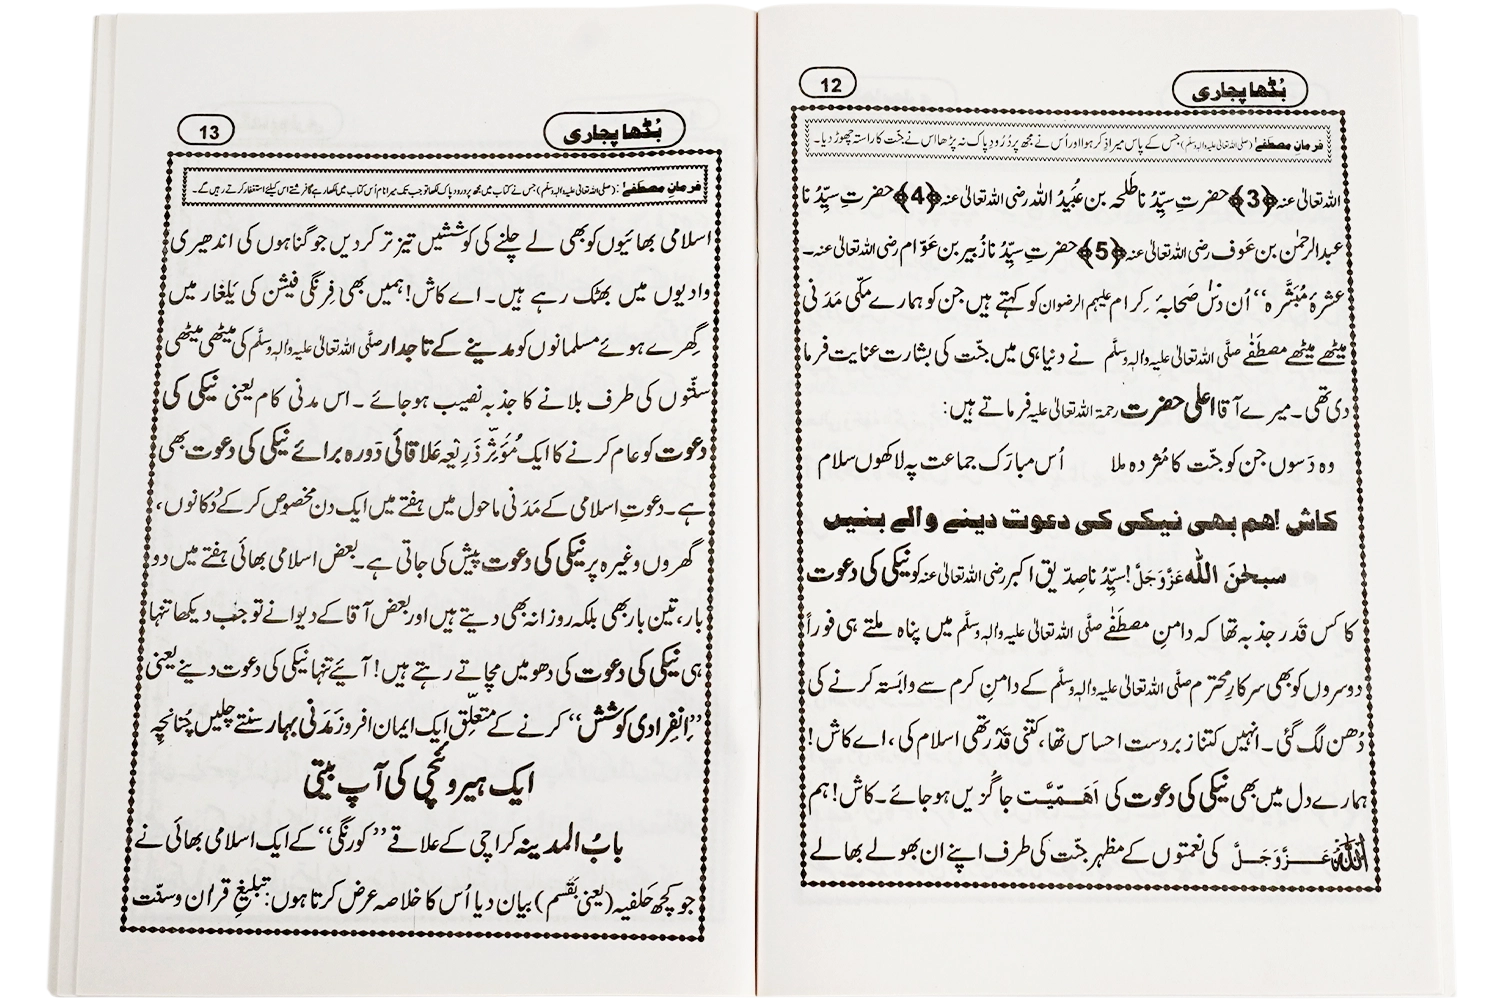 12
بُڈھا پجاری
فرمانِ مصطفےٰ (صلی اللہ تعالیٰ علیہ والہٖ وسلّم) جس کے پاس میرا ذکر ہوا اور اُس نے مجھ پر دُرُودِ پاک نہ پڑھا اس نے جنّت کا راستہ چھوڑ دیا۔
اللہ تعالیٰ عنہ ﴿3﴾ حضرتِ سیِّدُنا طَلحہ بن عُبَیدُ اللہ رضی اللہ تعالیٰ عنہ ﴿4﴾ حضرتِ سیِّدُنا
عبدالرحمٰن بن عَوف رضی اللہ تعالیٰ عنہ ﴿5﴾ حضرتِ سیِّدُنا زُبیر بن عَوّام رضی اللہ تعالیٰ عنہ۔
عشرۂ مُبَشَّرہ“ اُن دس صَحابۂ کِرام علیہم الرضوان کو کہتے ہیں جن کو ہمارے مکّی مَدَنی
میٹھے میٹھے مصطَفٰے صلَّی اللہ تعالیٰ علیہ والہٖ وسلَّم نے دنیا ہی میں جنّت کی بشارت عنایت فرما
دی تھی۔ میرے آقا اعلیٰ حضرت رحمۃ اللہ تعالیٰ علیہ فرماتے ہیں:
وہ دَسوں جن کو جنّت کا مُژدہ ملا اُس مبارَک جماعت پہ لاکھوں سلام
کاش !ہم بھی نیکی کی دعوت دینے والے بنیں
سبحٰنَ اللہ عَزَّوَجَلَّ! سیِّدُنا صِدّیقِ اکبر رضی اللہ تعالیٰ عنہ کو نیکی کی دعوت
کا کس قَدَر جذبہ تھا کہ دامنِ مصطَفٰے صلَّی اللہ تعالیٰ علیہ والہٖ وسلَّم میں پناہ ملتے ہی فوراً
دوسروں کو بھی سرکارِ محترم صلَّی اللہ تعالیٰ علیہ والہٖ وسلَّم کے دامنِ کرم سے وابَستہ کرنے کی
دُھن لگ گئی۔ انہیں کتنا زبردست احساس تھا، کتنی قَدْر تھی اسلام کی، اے کاش!
ہمارے دل میں بھی نیکی کی دعوت کی اَہَمِّیَّت جاگُزیں ہو جائے۔ کاش! ہم
اللہ عَزَّوَجَلَّ کی نعمتوں کے مظہر جنّت کی طرف اپنے ان بھولے بھالے
13
بُڈھا پجاری
فرمانِ مصطفےٰ: (صلی اللہ تعالیٰ علیہ والہٖ وسلّم) جس نے کتاب میں مجھ پر درود پاک لکھا تو جب تک میرا نام اُس کتاب میں لکھا رہے گا فرشتے اس کیلئے استغفار کرتے رہیں گے۔
اسلامی بھائیوں کو بھی لے چلنے کی کوششیں تیز تر کر دیں جو گناہوں کی اندھیری
وادیوں میں بھٹک رہے ہیں۔ اے کاش! ہمیں بھی فِرنگی فیشن کی یَلغار میں
گِھرے ہوئے مسلمانوں کو مدینے کے تاجدار صلَّی اللہ تعالیٰ علیہ والہٖ وسلَّم کی میٹھی میٹھی
سنّتوں کی طرف بلانے کا جذبہ نصیب ہو جائے۔ اس مدنی کام یعنی نیکی کی
دعوت کو عام کرنے کا ایک مُؤَثِّر ذَرِیعہ عَلاقائی دَورہ برائے نیکی کی دعوت بھی
ہے۔ دعوتِ اسلامی کے مَدَنی ماحول میں ہفتے میں ایک دن مخصوص کر کے دُکانوں،
گھروں وغیرہ پر نیکی کی دعوت پیش کی جاتی ہے۔ بعض اسلامی بھائی ہفتے میں دو
بار، تین بار بھی بلکہ روزانہ بھی دیتے ہیں اور بعض آقا کے دیوانے تو جب دیکھا تنہا
ہی نیکی کی دعوت کی دھومیں مچاتے رہتے ہیں! آئیے تنہا نیکی کی دعوت دینے یعنی
”اِنفِرادی کوشش“ کرنے کے متعلِّق ایک ایمان افروز مَدَنی بہار سنتے چلیں چُنانچِہ
ایک ہیروئنچی کی آپ بیتی
بابُ المدینہ کراچی کے علاقے ”کورنگی“ کے ایک اسلامی بھائی نے
جو کچھ حَلفیہ (یعنی بَقَسم) بیان دیا اُس کا خلاصہ عرض کرتا ہوں: تبلیغِ قران وسنّت